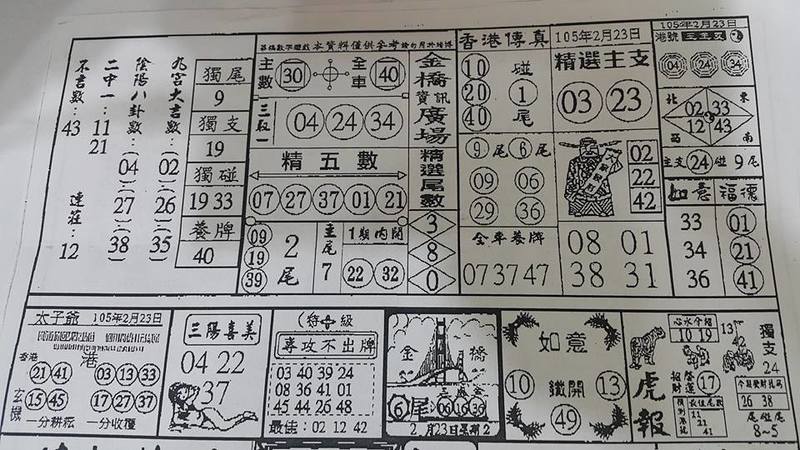 九宮大吉數:(02)(26)(35)
陰陽八卦數:(04)(27)(38)
二中一:11 21
不吉數:43 連莊:12
獨尾
9
獨支
19
獨碰
19 33
養牌
40
本資料僅供參考
主數 30 全車 40
04 24 34
精五數
07 27 37 01 21
09
19
39
2尾
主尾7
1期內開
22 32
金橋資訊廣場
精選尾數
3
8
0
香港傳真 105年2月23日
10
20
40
碰
1
尾
精選主支
03 23
9尾 6尾
09 06
29 36
02
22
42
全車養牌
07 37 47
08 01
38 31
105年2月23日
港號
04 24 34
北 東
02 33
12 43
南
主支 24 碰 9尾
如意 福德
33 01
34 21
36 41
太子爺 105年2月23日
香港
港
21 41 03 13 33
玄機
15 45 17 27 37
一分耕耘 一分收穫
三陽喜美
04 22
37
(特 級
專攻不出牌
03 40 39 24
08 36 41 01
45 44 26 48
最佳:02 12 42
金橋
6尾 06 16 36
2月23日星期2
如意
10 鐵開 13
49
虎報
心水今招
10 19
招財進運 17
13
42
獨支
24
26 38
尾碰尾
8-5